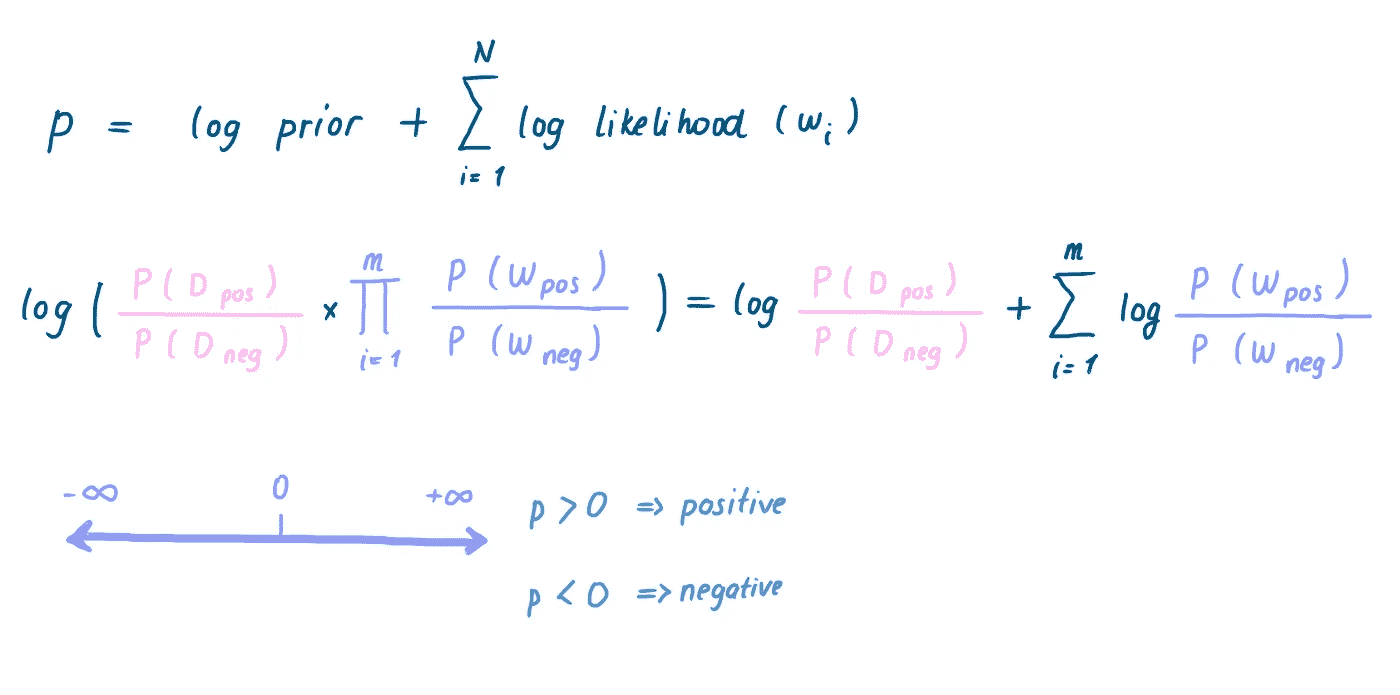 p = log prior + ∑_{i=1}^{N} log likelihood (w_i)
log ( P(D_pos) / P(D_neg) × ∏_{i=1}^{m} P(W_pos) / P(W_neg) ) = log P(D_pos) / P(D_neg) + ∑_{i=1}^{m} log P(W_pos) / P(W_neg)
-∞ 0 +∞
p > 0 => positive
p < 0 => negative